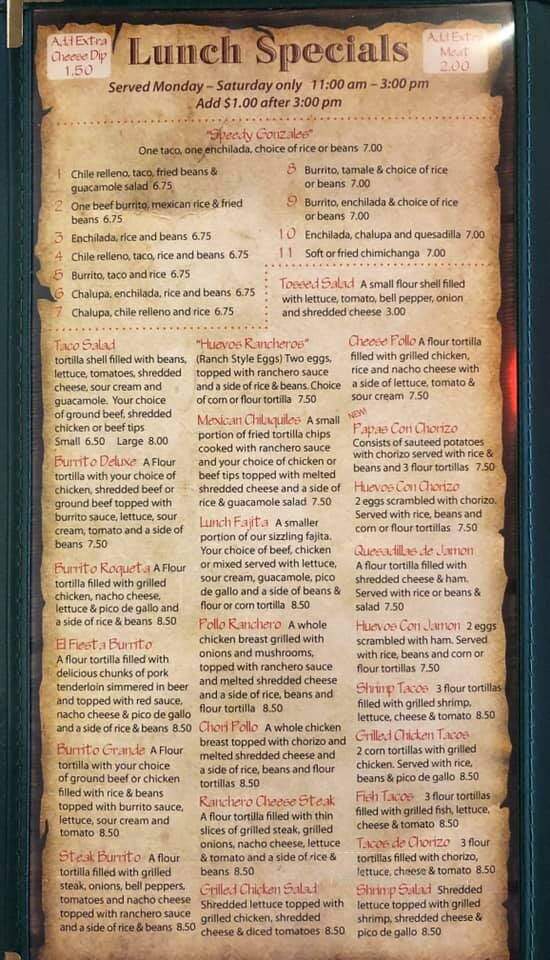 Add Extra
Cheese Dip
1.50
Lunch Specials
Add Extra
Meat
2.00
Served Monday – Saturday only 11:00 am – 3:00 pm
Add $1.00 after 3:00 pm
"Speedy Gonzales"
One taco, one enchilada, choice of rice or beans 7.00
1 Chile relleno, taco, fried beans &
guacamole salad 6.75
2 One beef burrito, mexican rice & fried
beans 6.75
3 Enchilada, rice and beans 6.75
4 Chile relleno, taco, rice and beans 6.75
5 Burrito, taco and rice 6.75
6 Chalupa, enchilada, rice and beans 6.75
7 Chalupa, chile relleno and rice 6.75
8 Burrito, tamale & choice of rice
or beans 7.00
9 Burrito, enchilada & choice of rice
or beans 7.00
10 Enchilada, chalupa and quesadilla 7.00
11 Soft or fried chimichanga 7.00
Tossed Salad A small flour shell filled
with lettuce, tomato, bell pepper, onion
and shredded cheese 3.00
Taco Salad
tortilla shell filled with beans,
lettuce, tomatoes, shredded
cheese, sour cream and
guacamole. Your choice
of ground beef, shredded
chicken or beef tips
Small 6.50 Large 8.00
Burrito Deluxe A Flour
tortilla with your choice of
chicken, shredded beef or
ground beef topped with
burrito sauce, lettuce, sour
cream, tomato and a side of
beans 7.50
Burrito Roqueta A Flour
tortilla filled with grilled
chicken, nacho cheese,
lettuce & pico de gallo and
a side of rice & beans 8.50
El Fiesta Burrito
A flour tortilla filled with
delicious chunks of pork
tenderloin simmered in beer
and topped with red sauce,
nacho cheese & pico de gallo
and a side of rice & beans 8.50
Burrito Grande A Flour
tortilla with your choice
of ground beef or chicken
filled with rice & beans
topped with burrito sauce,
lettuce, sour cream and
tomato 8.50
Steak Burrito A flour
tortilla filled with grilled
steak, onions, bell peppers,
tomatoes and nacho cheese
topped with ranchero sauce
and a side of rice & beans 8.50
"Huevos Rancheros"
(Ranch Style Eggs) Two eggs,
topped with ranchero sauce
and a side of rice & beans. Choice
of corn or flour tortilla 7.50
Mexican Chilaquiles A small
portion of fried tortilla chips
cooked with ranchero sauce
and your choice of chicken or
beef tips topped with melted
shredded cheese and a side of
rice & guacamole salad 7.50
Lunch Fajita A smaller
portion of our sizzling fajita.
Your choice of beef, chicken
or mixed served with lettuce,
sour cream, guacamole, pico
de gallo and a side of beans &
flour or corn tortilla 8.50
Pollo Ranchero A whole
chicken breast grilled with
onions and mushrooms,
topped with ranchero sauce
and melted shredded cheese
and a side of rice, beans and
flour tortilla 8.50
Chori Pollo A whole chicken
breast topped with chorizo and
melted shredded cheese and
a side of rice, beans and flour
tortillas 8.50
Ranchero Cheese Steak
A flour tortilla filled with thin
slices of grilled steak, grilled
onions, nacho cheese, lettuce
& tomato and a side of rice &
beans 8.50
Grilled Chicken Salad
Shredded lettuce topped with
grilled chicken, shredded
cheese & diced tomatoes 8.50
Cheese Pollo A flour tortilla
filled with grilled chicken,
rice and nacho cheese with
a side of lettuce, tomato &
sour cream 7.50
NEW!
Papas Con Chorizo
Consists of sauteed potatoes
with chorizo served with rice &
beans and 3 flour tortillas 7.50
Huevos Con Chorizo
2 eggs scrambled with chorizo.
Served with rice, beans and
corn or flour tortillas 7.50
Quesadillas de Jamon
A flour tortilla filled with
shredded cheese & ham.
Served with rice or beans &
salad 7.50
Huevos Con Jamon 2 eggs
scrambled with ham. Served
with rice, beans and corn or
flour tortillas 7.50
Shrimp Tacos 3 flour tortillas
filled with grilled shrimp,
lettuce, cheese & tomato 8.50
Grilled Chicken Tacos
2 corn tortillas with grilled
chicken. Served with rice,
beans & pico de gallo 8.50
Fish Tacos 3 flour tortillas
filled with grilled fish, lettuce,
cheese & tomato 8.50
Tacos de Chorizo 3 flour
tortillas filled with chorizo,
lettuce, cheese & tomato 8.50
Shrimp Salad Shredded
lettuce topped with grilled
shrimp, shredded cheese &
pico de gallo 8.50